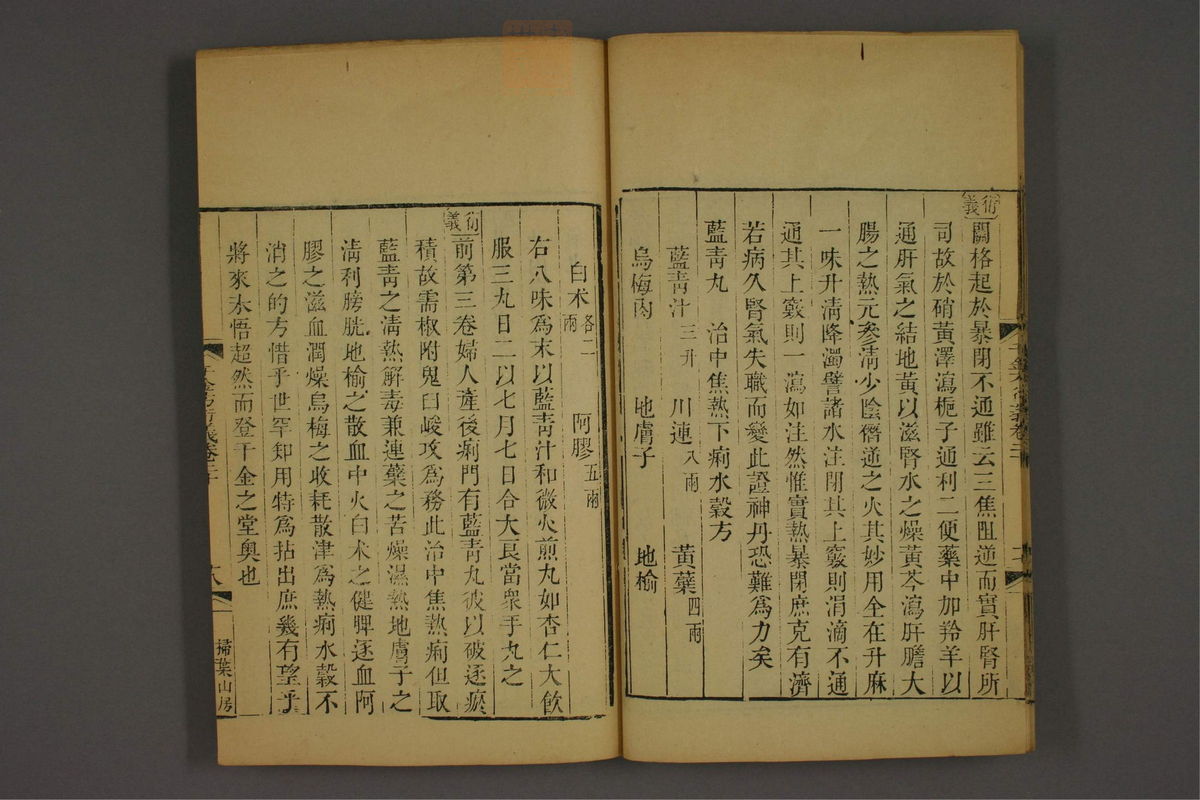 衍義
關格起於暴閉不通雖云三焦阻逆而實肝腎所
司故於硝黃澤瀉梔子通利二便藥中加羚羊以
通肝氣之結地黃以滋腎水之燥黃芩瀉肝膽大
腸之熱元參清少陰僭逆之火其妙用全在升麻
一味升清降濁譬諸水注閉其上竅則涓滴不通
通其上竅則一瀉如注然惟實熱暴閉庶克有濟
若病久腎氣失職而變此證神丹恐難爲力矣
藍青丸　治中焦熱下痢水穀方
藍青汁三升　川連八兩　黃蘗四兩
烏梅肉　地膚子　地榆
白朮各二兩　阿膠五兩
右八味爲末以藍青汁和微火煎丸如杏仁大飲
服三丸日二以七月七日合大良當衆手丸之
衍義
前第三卷婦人產後痢門有藍青丸彼以破逐瘀
積故需椒附鬼臼峻攻爲務此治中焦熱痢但取
藍青之清熱解毒兼連蘗之苦燥濕熱地膚子之
清利膀胱地榆之散血中火白朮之健脾逐血阿
膠之滋血潤燥烏梅之收耗散津爲熱痢水穀不
消之的方惜乎世罕知用特爲拈出庶幾有望乎
將來大悟超然而登千金之堂奧也
千金方衍義卷二十
八
掃葉山房